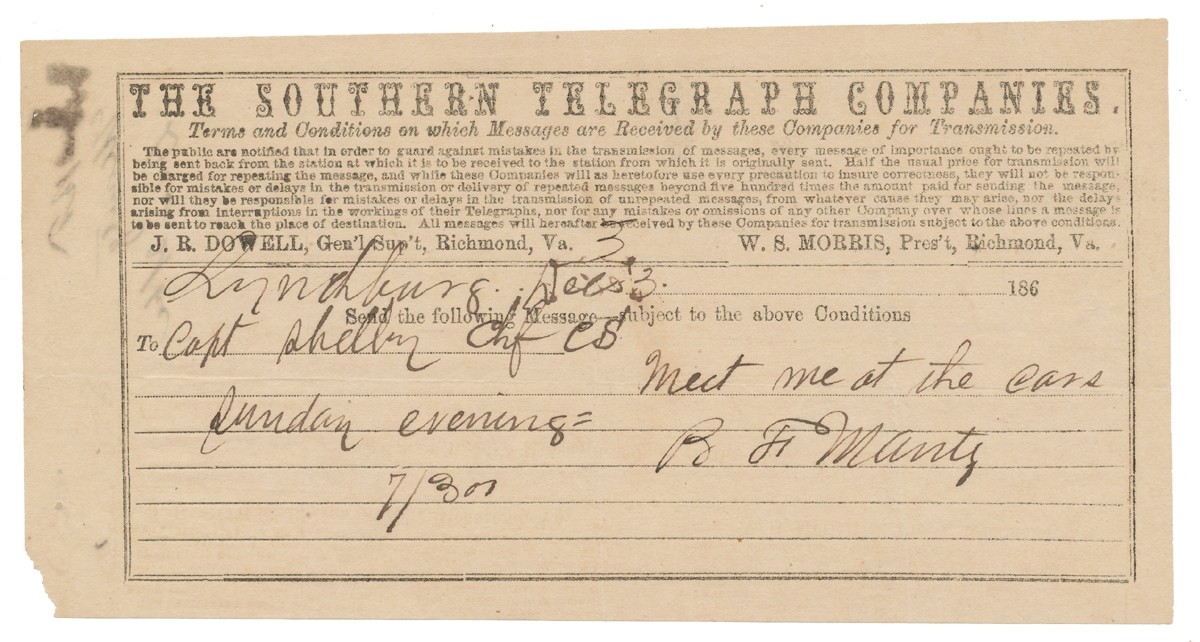 THE SOUTHERN TELEGRAPH COMPANIES.
Terms and Conditions on which Messages are Received by these Companies for Transmission.
The public are notified that in order to guard against mistakes in the transmission of messages, every message of importance ought to be repeated by
being sent back from the station at which it is to be received to the station from which it is originally sent. Half the usual price for transmission will
be charged for repeating the message, and while these Companies will as heretofore use every precaution to insure correctness, they will not be respon-
sible for mistakes or delays in the transmission or delivery of repeated messages beyond five hundred times the amount paid for sending the message,
nor will they be responsible for mistakes or delays in the transmission of unrepeated messages, from whatever cause they may arise, nor the delays
arising from interruptions in the workings of their Telegraphs, nor for any mistakes or omissions of any other Company over whose lines a message is
to be sent to reach the place of destination. All messages will hereafter be received by these Companies for transmission subject to the above conditions.
J. R. DOWELL, Gen'l Sup't, Richmond, Va. 3 W. S. MORRIS, Pres't, Richmond, Va.
Lynchburg. 3. 186
Send the following Message subject to the above Conditions
To Capt Shelby Chf CS
Meet me at the cars
Sunday evening=
B F Mantz
7/300